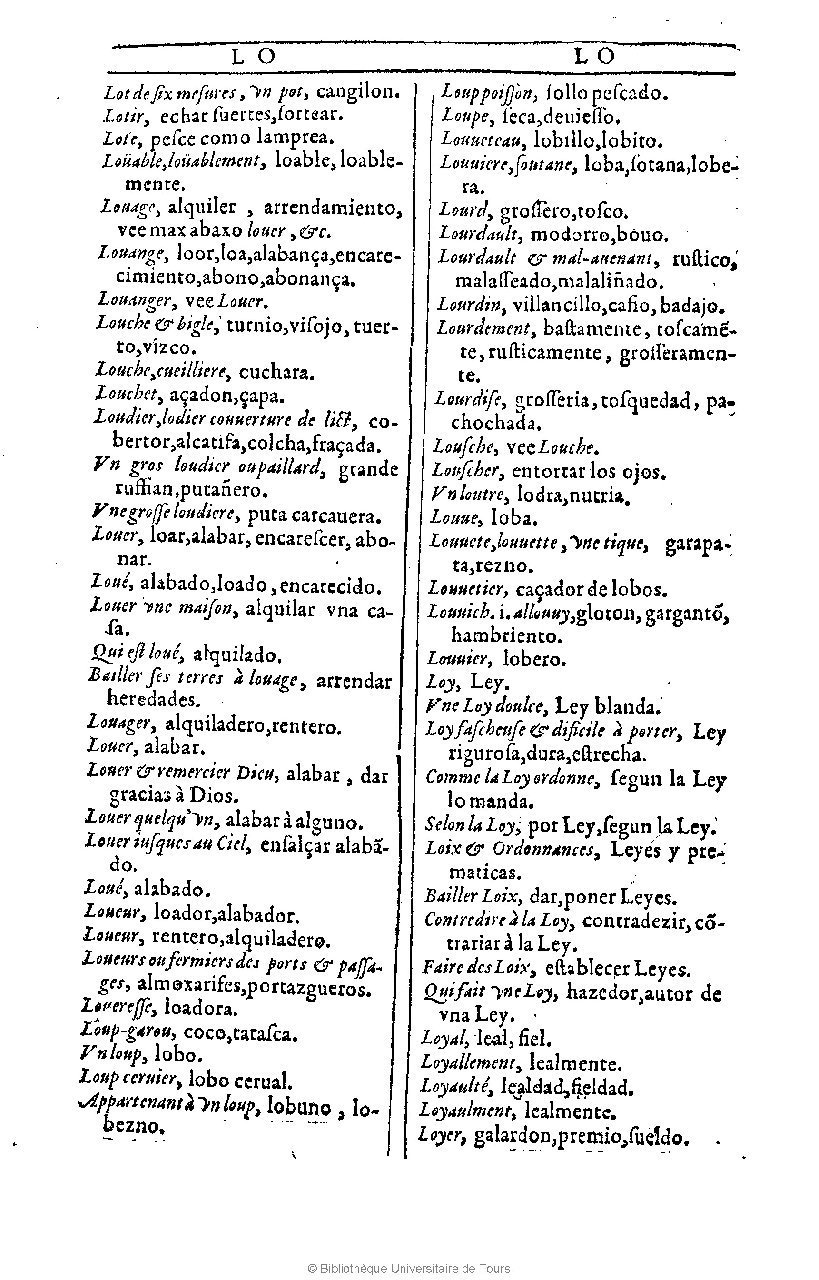 LO
Lot de six mesures, vn pot, cangilon.
Lotir, echar ſuertes,ſortear.
Lote, peſce como lamprea.
Loüable,loüablement, loable,loable-
mente.
Louage, alquiler , arrendamiento,
vee mas abaxo louer, &c.
Louange, loor,loa,alabança,encare-
cimiento,abono,abonança.
Louanger, vee Louer.
Louche & bigle, turnio,viſojo, tuer-
to,vizco.
Louche,cueilliere, cuchara.
Louchet, açadon,çapa.
Loudier,lodier couuerture de lict, co-
bertor,alcatifa,colcha,fraçada.
Vn gros loudier ou paillard, grande
ruffian,putañero.
Vne groſſe loudiere, puta carcauera.
Louer, loar,alabar, encareſcer, abo-
nar.
Loué, alabado,loado,encarecido.
Louer vne maiſon, alquilar vna ca-
ſa.
Qui eſt loué, alquilado.
Bailler ſes terres à louage, arrendar
heredades.
Louager, alquiladero,rentero.
Louer, alabar.
Louer & remercier Dieu, alabar , dar
gracias à Dios.
Louer quelqu'vn, alabar à alguno.
Louer iuſques au Ciel, enſalçar alabā-
do.
Loué, alabado.
Loueur, loador,alabador.
Loueur, rentero,alquiladero.
Loueurs ou fermiers des ports & paſſa-
ges, almoxarifes,portazgueros.
Loüereſſe, loadora.
Loup-garou, coco,taraſca.
Vn loup, lobo.
Loup ceruier, lobo cerual.
Appartenant à vn loup, lobuno , lo-
bezno.
LO
Louppoiſſon, ſollo peſcado.
Loupe, ſeca,deuieſſo.
Louueteau, lobillo,lobito.
Louuiere,ſoutane, loba,ſotana,lobe-
ra.
Lourd, groſſero,toſco.
Lourdault, modorro,bouo.
Lourdault & mal-auenant, ruſtico,
malaſſeado,malaliñado.
Lourdin, villancillo,cafio, badajo.
Lourdement, baſtamente, toſcamē-
te, ruſticamente, groſſeramen-
te.
Lourdiſe, groſſeria,toſquedad, pa-
chochada.
Louſche, vee Louche.
Louſcher, entortar los ojos.
Vn loutre, lodra,nutria.
Louue, loba.
Louuete,louuette, vne tique, garapa-
ta,rezno.
Louuetier, caçador de lobos.
Louuich. i. allouuy,gloton, gargantō,
hambriento.
Louuier, lobero.
Loy, Ley.
Vne Loy doulce, Ley blanda.
Loy faſcheuſe & dificile à porter, Ley
riguroſa,dura,eſtrecha.
Comme la Loy ordonne, ſegun la Ley
lo manda.
Selon la Loy, por Ley,ſegun la Ley.
Loix & Ordonnances, Leyes y pre-
maticas.
Bailler Loix, dar,poner Leyes.
Contredire à la Loy, contradezir, cō-
trariar à la Ley.
Faire des Loix, eſtablecer Leyes.
Qui fait vne Loy, hazedor,autor de
vna Ley.
Loyal, leal, fiel.
Loyallement, lealmente.
Loyaulté, lealdad,fieldad.
Loyaulment, lealmente.
Loyer, galardon,premio,ſueldo.
© Bibliothèque Universitaire de Tours